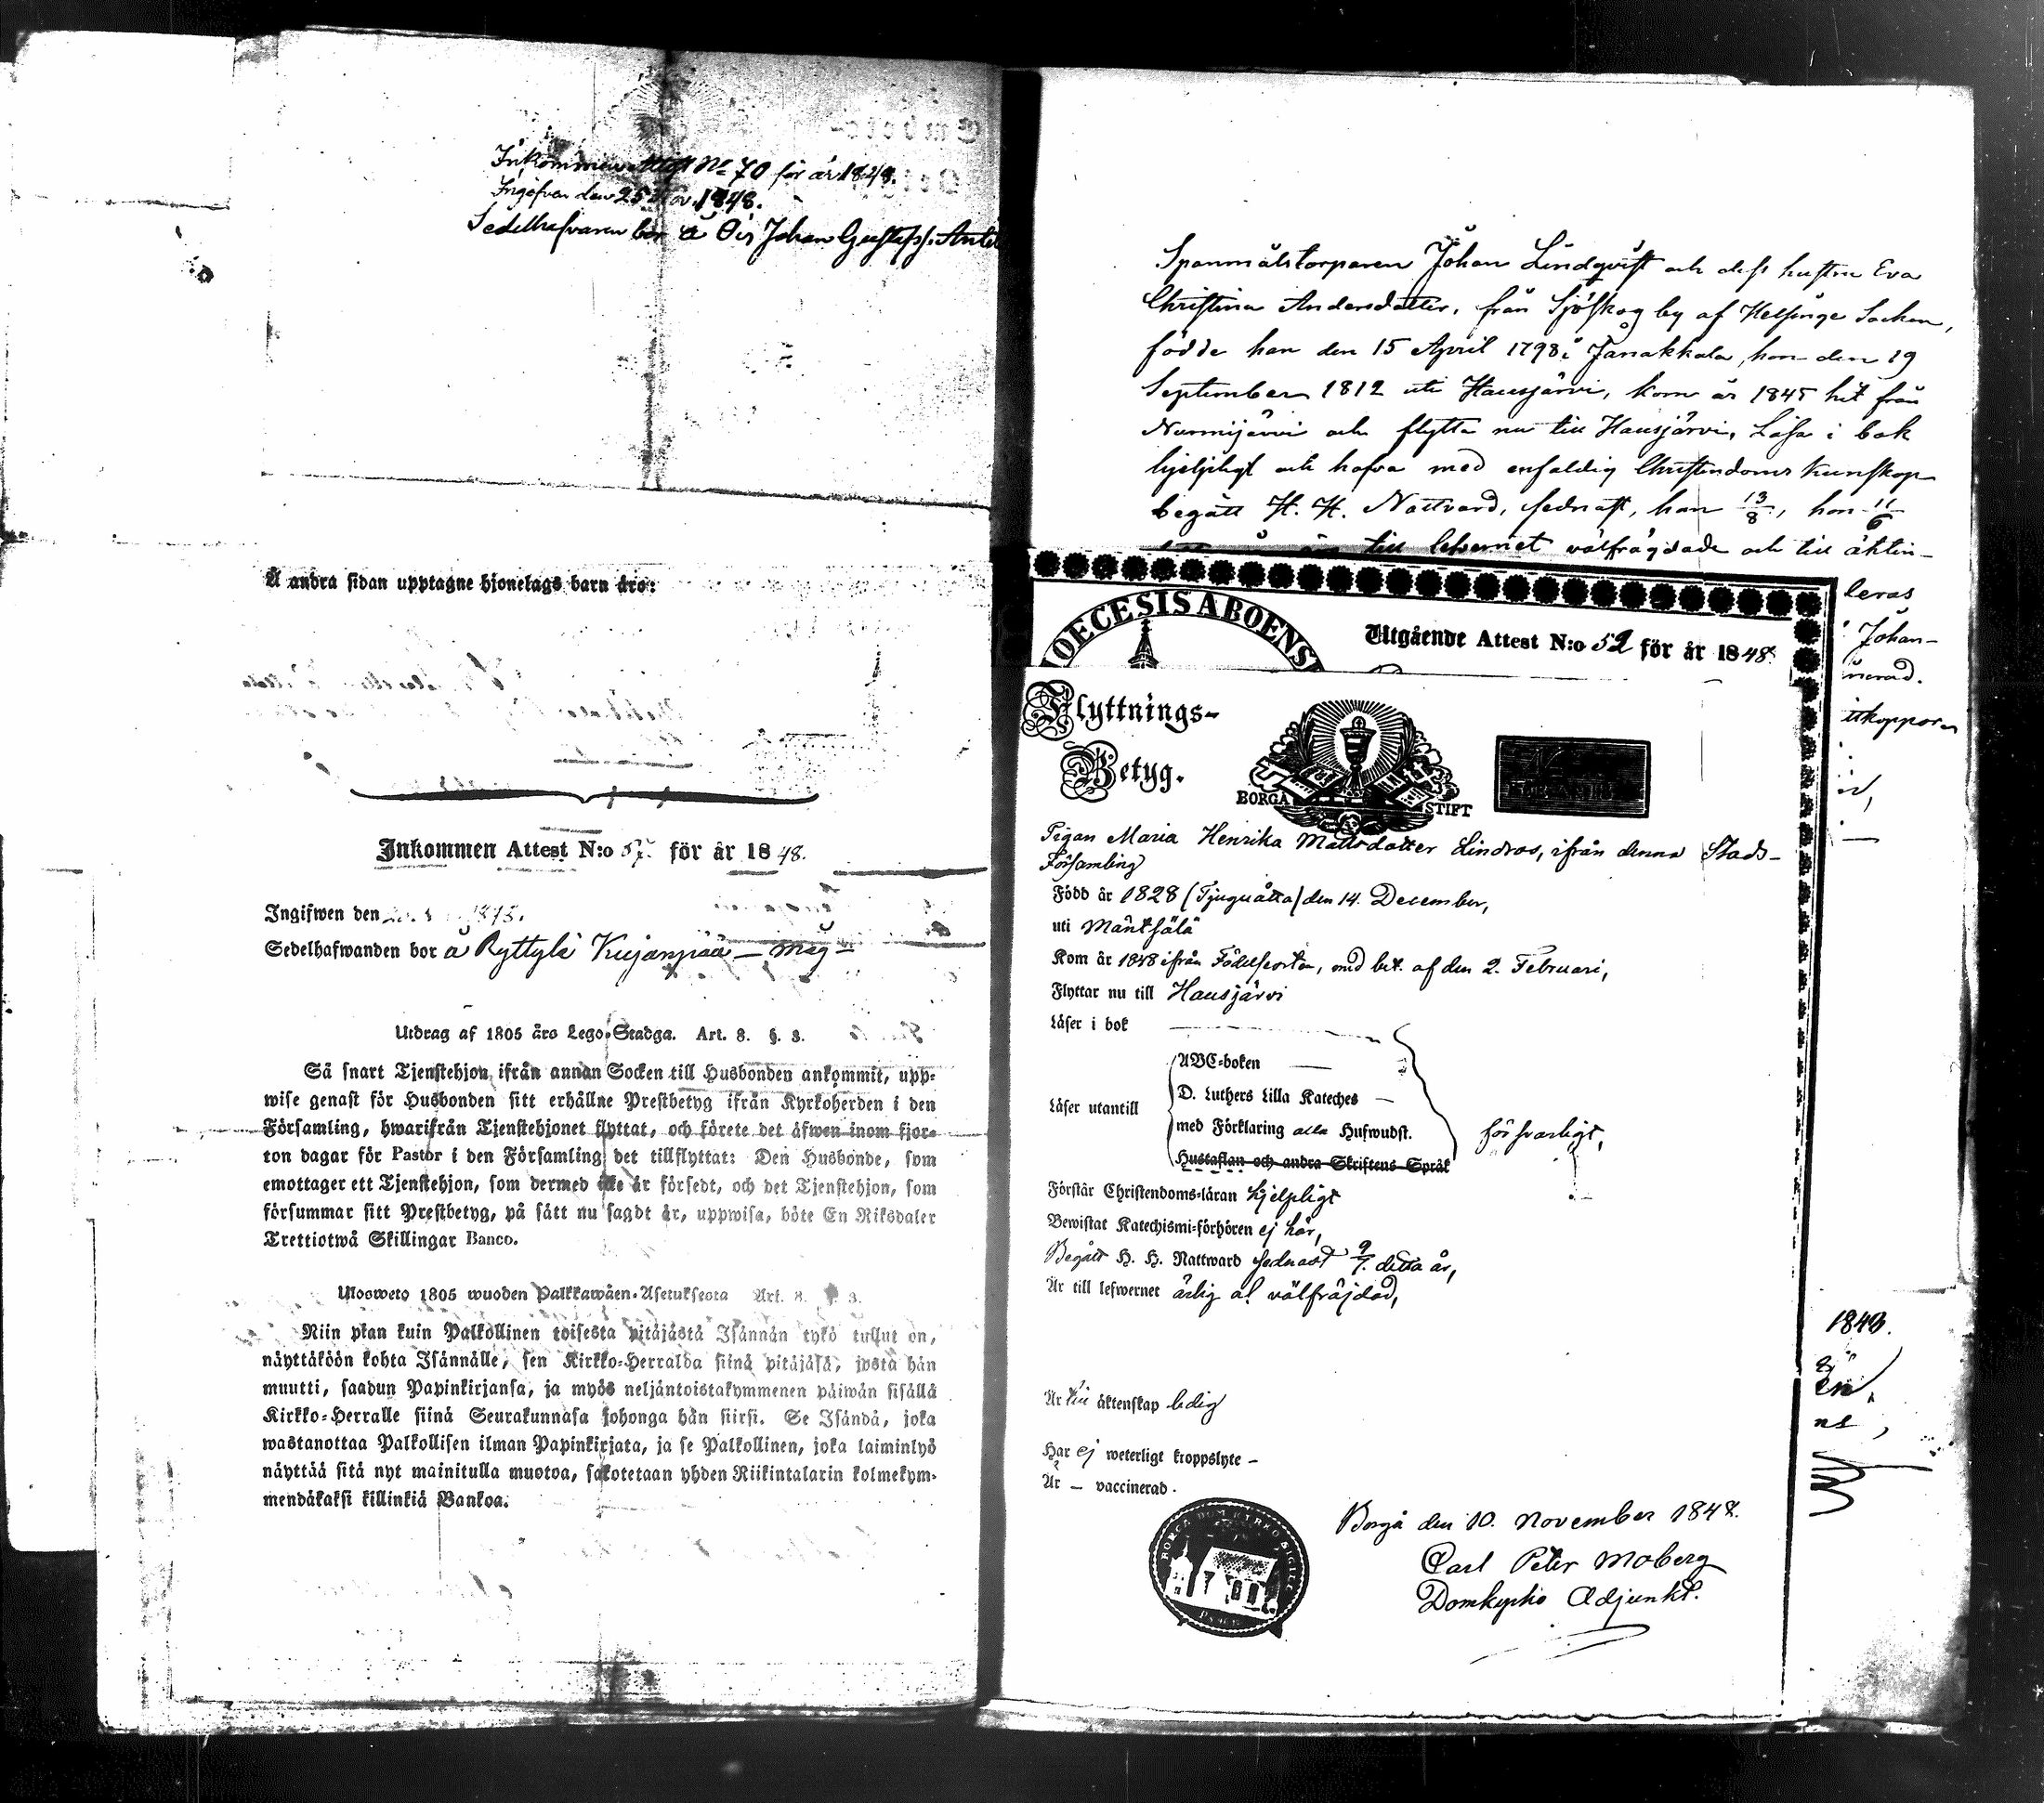 Inkommen Attest No 70 för år 1848.
Ingifvan den 25 Nov. 1848.
Sedelhafvaren bor å Öis Johan Gustafss:
Å andra sidan upptagne hjonelags barn äro:
Inkommen Attest N:o 57. för år 1848.
Ingifwen den
Sedelhafwanden bor å Ryttylä Kujanpää — mäg —
Utdrag af 1805 års Lego-Stadga. Art. 8. §. 3.
Så snart Tjenstehjon ifrån annan Socken till Husbonden ankommit, upp-
wise genast för Husbonden sitt erhållne Prestbetyg ifrån Kyrkoherden i den
Församling, hwarifrån Tjenstehjonet flyttat, och förete det äfwen inom fjor-
ton dagar för Pastor i den Församling det tillflyttat: Den Husbonde, som
emottager ett Tjenstehjon, som dermed icke är försedt, och det Tjenstehjon, som
försummar sitt Prestbetyg, på sätt nu sagdt är, uppwisa, böte En Riksdaler
Trettiotwå Skillingar Banco.
Ulosweto 1805 wuoden Palkkawäen-Asetuksesta Art. 8. §. 3.
Niin pian kuin Palkollinen toisesta pitäjästä Isännän tykö tullut on,
näyttäköön kohta Isännälle, sen Kirkko-Herralda siinä pitäjäsä, josta hän
muutti, saadun Papinkirjansa, ja myös neljäntoistakymmenen päiwän sisällä
Kirkko-Herralle siinä Seurakunnasa johonga hän siirsi. Se Isändä, joka
wastanottaa Palkollisen ilman Papinkirjata, ja se Palkollinen, joka laiminlyö
näyttää sitä nyt mainitulla muotoa, sakotetaan yhden Riikintalarin kolmekym-
mendäkaksi killinkiä Bankoa.
Spanmålstorparen Johan Lindqvist och dess hustru Eva
Christina Andersdotter, från Sjöskog by af Helsinge Socken,
födde han den 15 April 1798 i Janakkala, hon den 19
September 1812 uti Hausjärvi, kom år 1845 hit från
Nurmijärvi och flytta nu till Hausjärvi, Läsa i bok
hjelpligt och hafva med enfaldig Christendoms kunskap
begått H. H. Nattvard, sednast, han 13/8, hon 11/6
till lefvernet välfrägdade och till äkten-
leras
Johan-
nerad.
ttkoppor
DIOECESIS ABOENS
Utgående Attest N:o 52 för år 1848.
Flyttnings-
Betyg.
BORGÅ STIFT
Pigan Maria Henrika Mattsdotter Lindroos, ifrån denna Stads-
Församling
Född år 1828 (Tjuguåtta) den 14. December,
uti Mäntsälä
Kom år 1848 ifrån Födelseorten, med bet. af den 2. Februari,
Flyttar nu till Hausjärvi
Läser i bok
Läser utantill
ABC-boken
D. Luthers Lilla Kateches
med Förklaring alla Hufwudst.
Hustaflan och andra Skriftens Språk
försvarligt,
Förstår Christendoms-läran hjelpligt
Bewistat Katechismi-förhören ej här,
Begått H. H. Nattward sednast 9/7. detta år,
Är till lefwernet ärlig och välfräjdad,
Är till äktenskap ledig
Har ej weterligt kroppslyte –
Är – vaccinerad.
Borgå den 10. November 1848.
Carl Peter Moberg
Domkyrko Adjunkt.
BORGÅ DOM KYRKO SIGILL
1848.